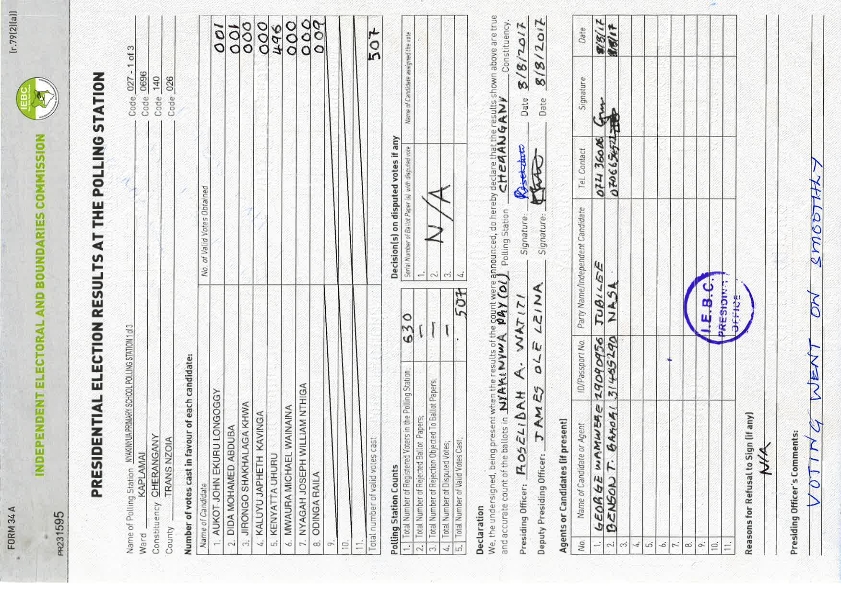 FORM 34 A
[r.79(2)(a)]
INDEPENDENT ELECTORAL AND BOUNDARIES COMMISSION
IEBC
PR231595
PRESIDENTIAL ELECTION RESULTS AT THE POLLING STATION
Name of Polling Station NYAKINUA PRIMARY SCHOOL POLLING STATION 1 of 3 Code 027 - 1 of 3
Ward KAPLAMAI Code 0696
Constituency CHERANGANY Code 140
County TRANS NZOIA Code 026
Number of votes cast in favour of each candidate:
Name of Candidate No. of Valid Votes Obtained
1. AUKOT JOHN EKURU LONGOGGY 001
2. DIDA MOHAMED ABDUBA 001
3. JIRONGO SHAKHALAGA KHWA 000
4. KALUYU JAPHETH KAVINGA 000
5. KENYATTA UHURU 496
6. MWAURA MICHAEL WAINAINA 000
7. NYAGAH JOSEPH WILLIAM NTHIGA 000
8. ODINGA RAILA 009
9.
10.
11.
Total number of valid votes cast 507
Polling Station Counts
1. Total Number of Registered Voters in the Polling Station 630
2. Total Number of Rejected Ballot Papers; —
3. Total Number of Rejection Objected To Ballot Papers; —
4. Total Number of Disputed Votes; —
5. Total Number of Valid Votes Cast; 507
Decision(s) on disputed votes if any
Serial Number of Ballot Paper (s) with disputed vote Name of Candidate assigned the vote
1.
2. N/A
3.
4.
Declaration
We, the undersigned, being present when the results of the count were announced, do hereby declare that the results shown above are true
and accurate count of the ballots in Polling Station CHERANGANY Constituency.
Presiding Officer: ROSELIDAH A. WATITI Signature: Date 8/8/2017
Deputy Presiding Officer: JAMES OLE LEINA Signature: Date 8/8/2017
Agents or Candidates (if present)
No. Name of Candidate or Agent ID/Passport No. Party Name/Independent Candidate Tel. Contact Signature Date
1. GEORGE WAMWERE 29090956 JUBILEE 8/8/17
2. BENSON T. 31485290 NASA 8/8/17
3.
4.
5.
6.
7.
8.
9.
10.
11.
I.E.B.C.
PRESIDING
OFFICE
Reasons for Refusal to Sign (if any)
N/A
Presiding Officer's Comments:
VOTING WENT ON SMOOTHLY